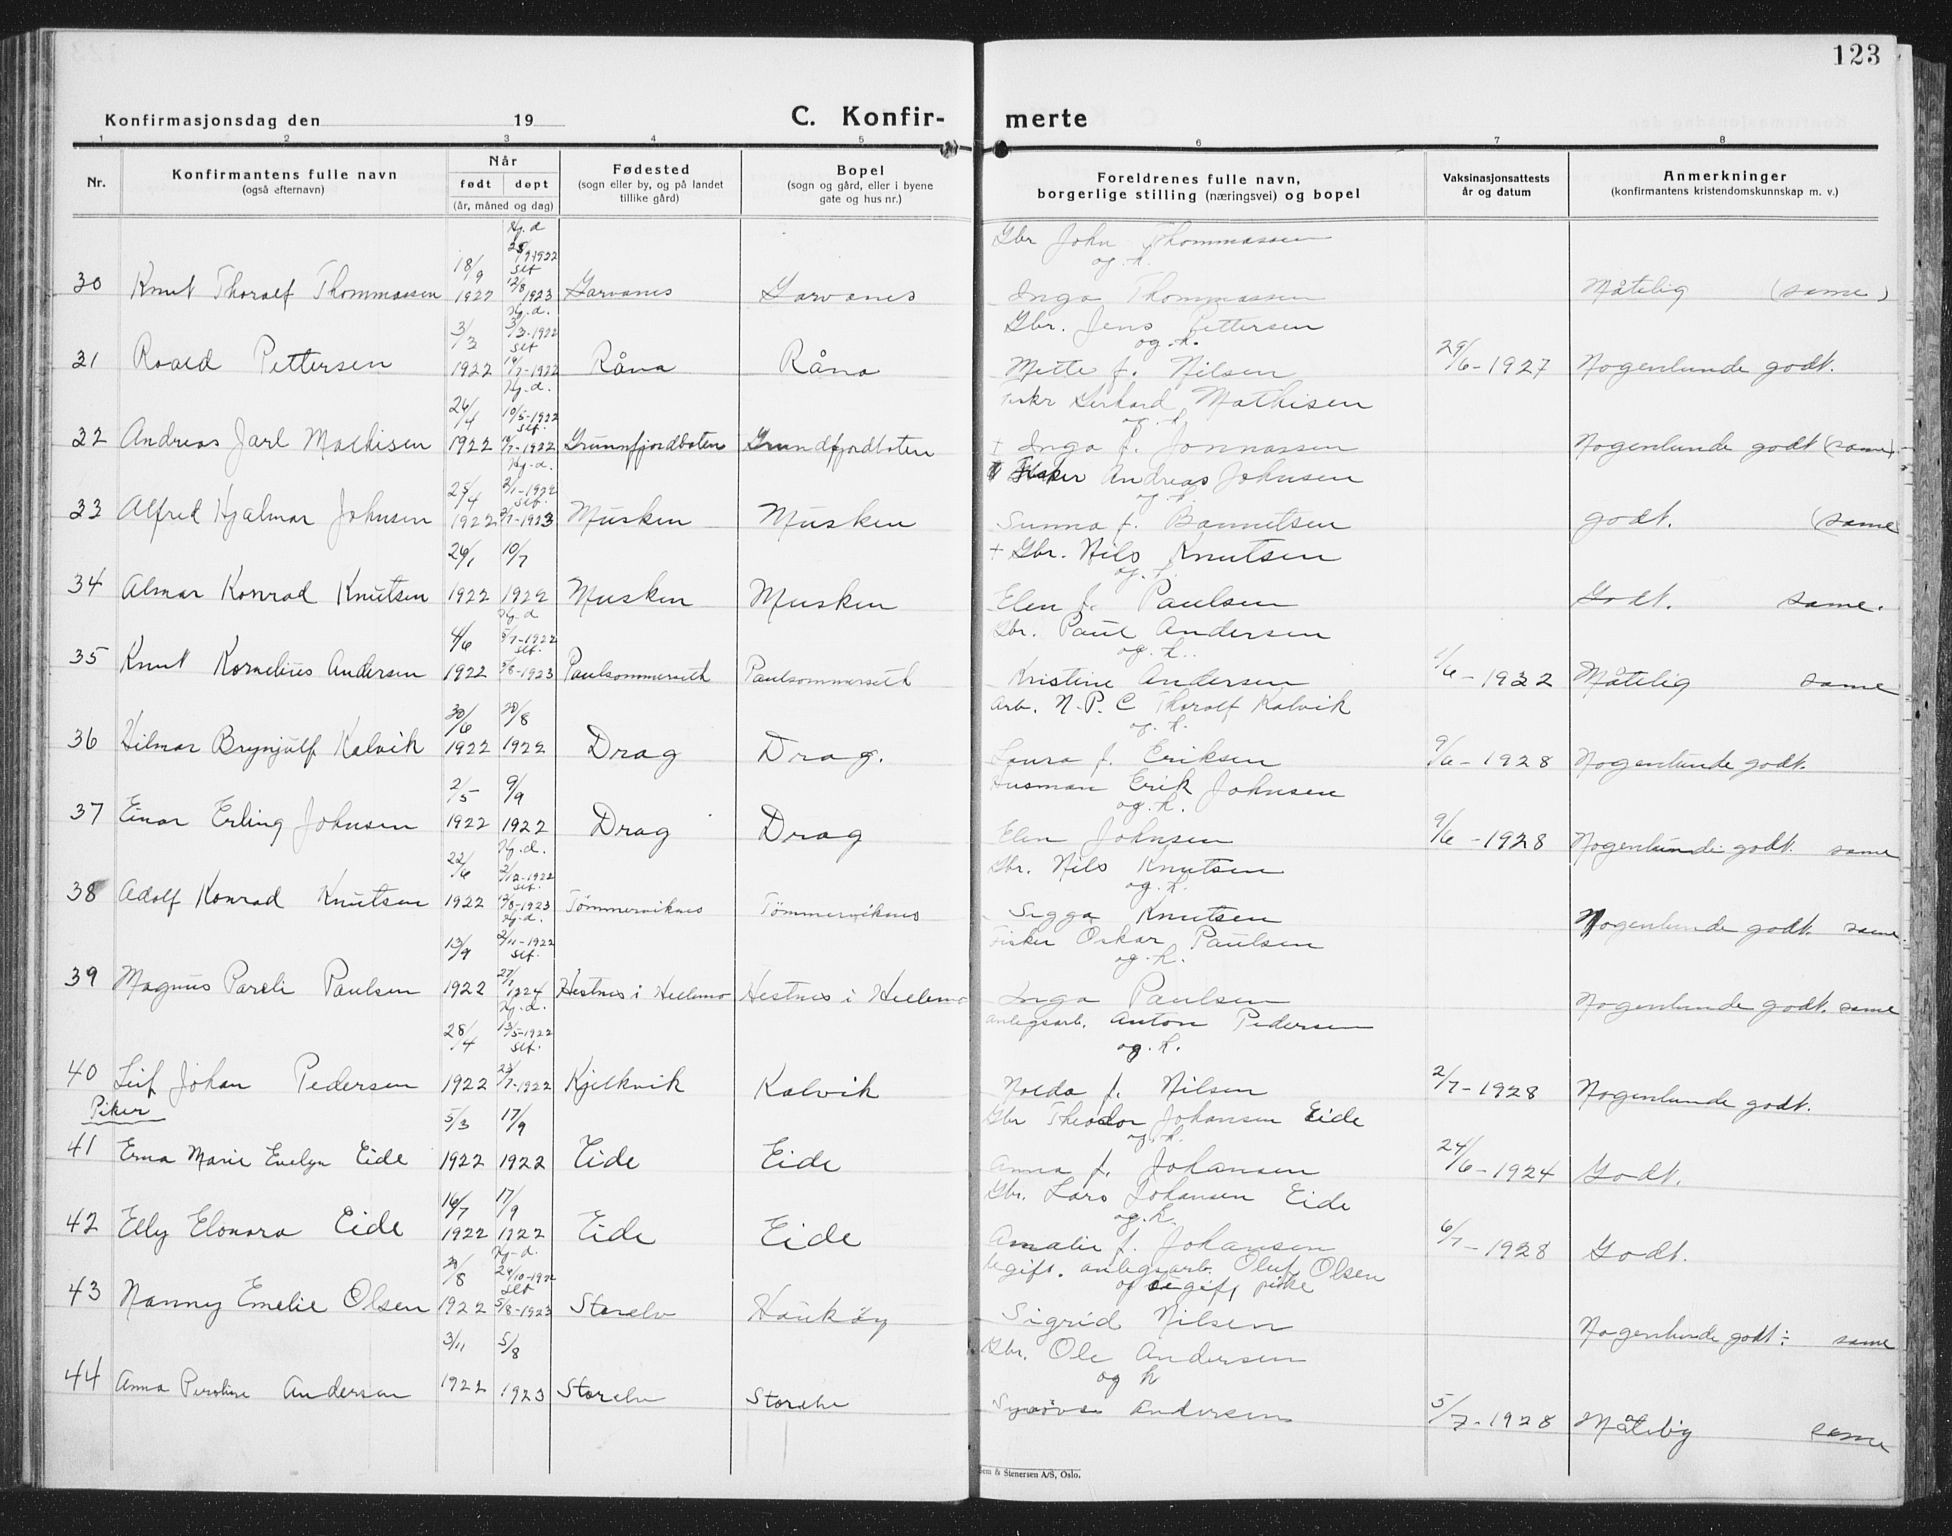 123
Konfirmasjonsdag den 19
C. Konfir- merte
1 2 3 4 5 6 7 8
Nr. Konfirmantens fulle navn (også efternavn) Når født døpt (år, måned og dag) Fødested (sogn eller by, og på landet tillike gård) Bopel (sogn og gård, eller i byene gate og hus nr.) Foreldrenes fulle navn, borgerlige stilling (næringsvei) og bopel Vaksinasjonsattests år og datum Anmerkninger (konfirmantens kristendomskunnskap m. v.)
Hj. d. 25/9 1922 Gbr John Thommassen
18/9 set og h.
30 Knut Thoralf Thommassen 1922 12/8 1923 Garvanes Garvanes Inga Thommassen Måtelig (same)
Hj. d. Gbr. Jens Pettersen
3/3 3/3-1922 set og h.
31 Roald Pettersen 1922 /7-1922 Råna Råna Mette f. Nilsen 29/6-1927 Nogenlunde godt.
Hj. d. Fiskr Mathisen
26/4 10/5-1922 set. og h.
32 Andreas Jarl Mathisen 1922 /7-1922 Grunnfjordboten Grundfjordboten + Inga f. Jonnassen Nogenlunde godt (same).
Hj. d. Fisker Andreas Johnsen
25/4 2/1-1922 set. og h.
33 Alfred Hjalmar Johnsen 1922 2/7-1923 Musken Musken Sunna f. godt. (same
26/1 10/7 + Gbr. Nils Knutsen
og h.
34 Almar Konrad Knutsen 1922 1922 Musken Musken Elen f. Paulsen Godt. same.
Hj. d Gbr. Paul Andersen
4/6 5/7-1922 set. og h.
35 Knut Kornelius Andersen 1922 5/8-1923 Paulsommerseth Paulsommerseth Kristine Andersen 1/6-1932 Måtelig same
Arb. N.P.C Thoralf Kalvik
30/6 20/8 og h.
36 Hilmar Brynjulf Kalvik 1922 1922 Drag Drag. Laura f. Eriksen 9/6-1928 Nogenlunde godt.
2/5 9/9 Husman Erik Johnsen
og h.
37 Einar Erling Johnsen 1922 1922 Drag Drag Elen Johnsen 9/6-1928 Nogenlunde godt. same
Hj. d. Gbr. Nils Knutsen
22/6 2/12-1922 set. og h.
38 Adolf Konrad Knutsen 1922 12/8-1923 Tömmerviknes Tömmerviknes Sigga Knutsen Nogenlunde godt. same.
Hj. d. Fisker Oskar Paulsen
13/9 2/11-1922 set. og h.
39 Magnus Pareli Paulsen 1922 27/7 1924 Hestnes i Hellemo Hestnes i Hellemo Inga Paulsen Nogenlunde godt. same
Hj. d. anlegsarb. Anton Pedersen
28/4 13/5-1922 set. og h.
40 Leif Johan Pedersen 1922 23/7-1922 Kjelkvik Kalvik Nolda f. Nilsen 2/7-1928 Nogenlunde godt.
Piker
5/3 17/9 Gbr Theodor Johansen Eide
og h.
41 Erna Marie Evelyn Eide 1922 1922 Eide Eide Anna f. Johansen 24/6-1924 Godt.
16/7 17/9 Gbr. Lars Johansen Eide
og h.
42 Elly Elonora Eide 1922 1922 Eide Eide Amalie f. Johansen 6/7-1928 Godt.
Hj-d. Ugift. anlegsarb. Oluf Olsen
20/8 29/10-1922 set og ugift pike
43 Nanny Emelie Olsen 1922 5/8-1923 Storelv Haukøy Sigrid Nilsen Nogenlunde godt ÷ same
3/11 5/8 Gbr. Ole Andersen
og h
44 Anna Andersen 1922 1923 Storelv Storelv Andersen 5/7-1928 Måtelig same
Sem & Stenersen A/S, Oslo.